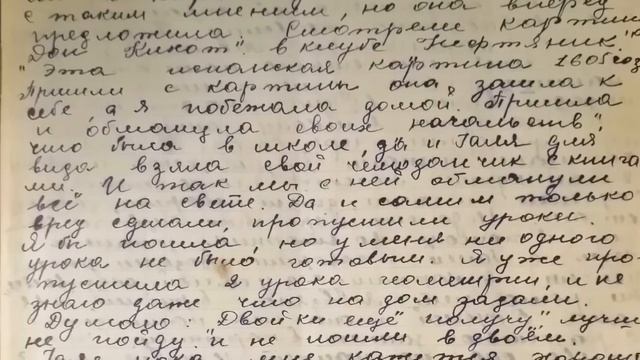 с таким мнением, но она вперёд
предложила. Смотрели картину
Дон Кихот", в клубе Нефтяник".
"Эта испанская картина 1605 год
Пришли с картины она, зашла к
себе, а я побежала домой. Пришла
и обманула своих начальств",
что была в школе, да и Галя для
вида взяла свой чемоданчик с книга
ми. И так мы с ней обманули
всё на свете. Да и самим только
вред сделали, пропустили уроки.
Я бы пошла, но у меня ни одного
урока не было готовым. Я уже про
пустила 2 урока геометрии, и не
знаю даже что на дом задали.
Думаю: Двойки ещё получу" лучше
не пойду "и не пошли в двоём.
мне кажется